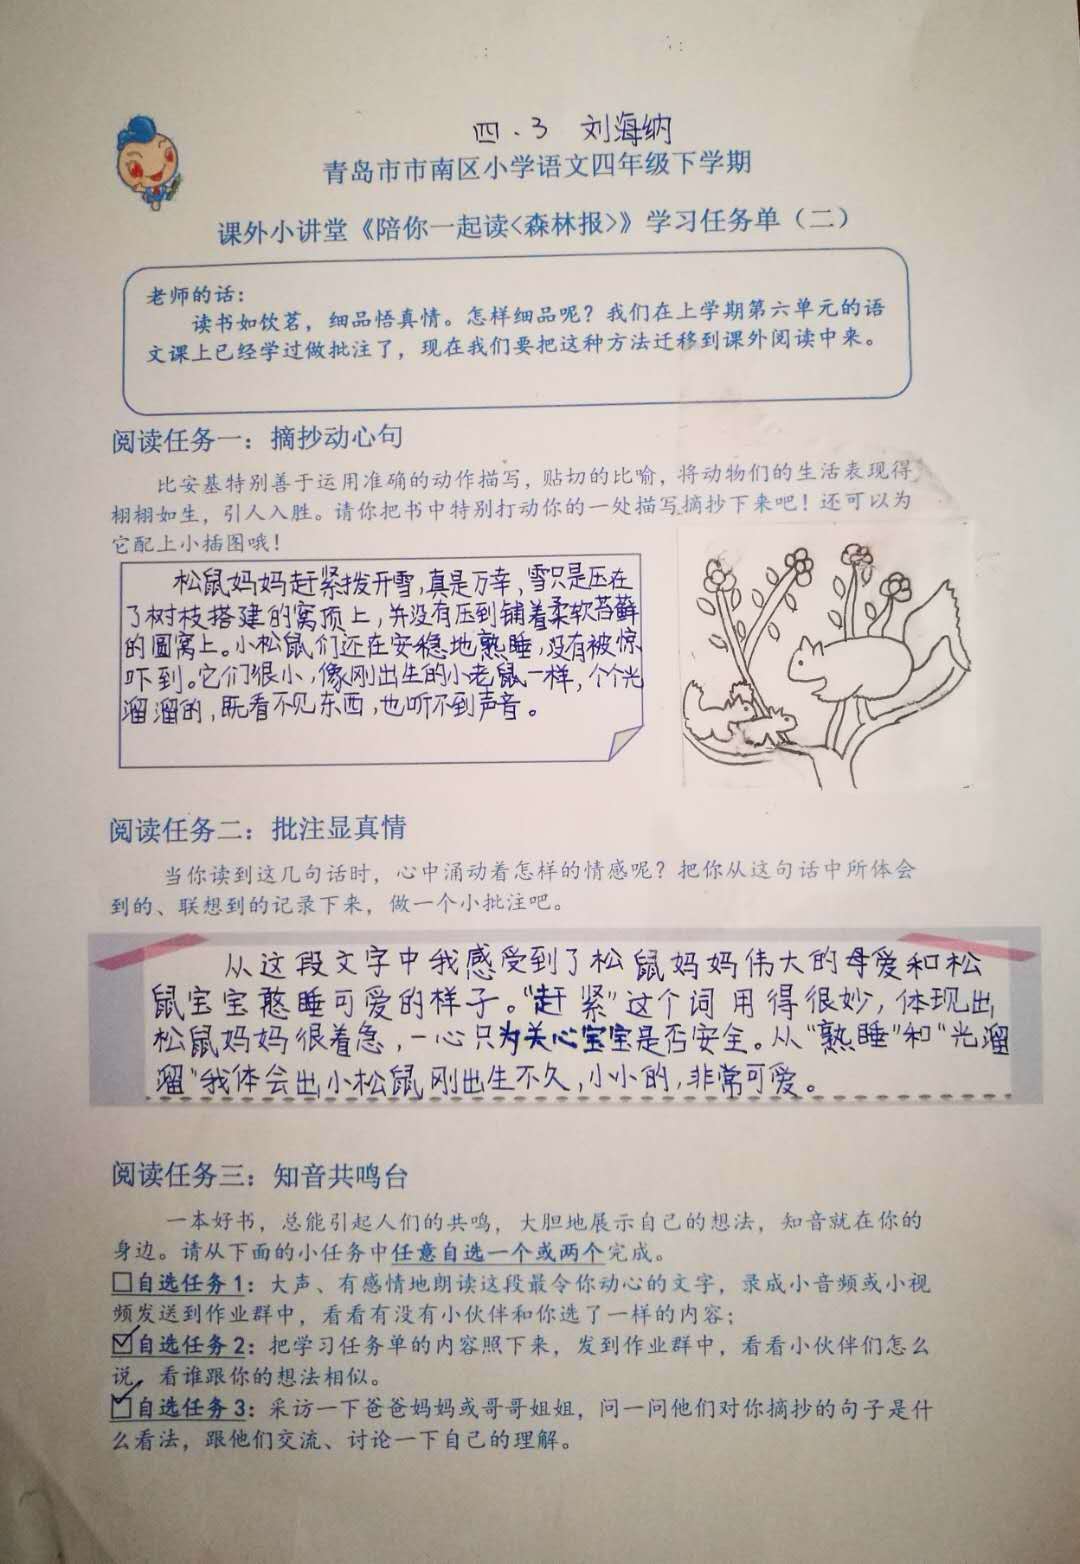 四.3 刘海纳
青岛市市南区小学语文四年级下学期
课外小讲堂《陪你一起读<森林报>》学习任务单（二）
老师的话：
读书如饮茗，细品悟真情。怎样细品呢？我们在上学期第六单元的语
文课上已经学过做批注了，现在我们要把这种方法迁移到课外阅读中来。
阅读任务一：摘抄动心句
比安基特别善于运用准确的动作描写，贴切的比喻，将动物们的生活表现得
栩栩如生，引人入胜。请你把书中特别打动你的一处描写摘抄下来吧！还可以为
它配上小插图哦！
松鼠妈妈赶紧拨开雪，真是万幸，雪只是压在
了树枝搭建的窝顶上，并没有压到铺着柔软苔藓
的圆窝上。小松鼠们还在安稳地熟睡，没有被惊
吓到。它们很小，像刚出生的小老鼠一样，个个光
溜溜的，既看不见东西，也听不到声音。
阅读任务二：批注显真情
当你读到这几句话时，心中涌动着怎样的情感呢？把你从这句话中所体会
到的、联想到的记录下来，做一个小批注吧。
从这段文字中我感受到了松鼠妈妈伟大的母爱和松
鼠宝宝憨睡可爱的样子。“赶紧”这个词用得很妙，体现出
松鼠妈妈很着急，一心只为关心宝宝是否安全。从“熟睡”和“光溜
溜”我体会出小松鼠刚出生不久，小小的，非常可爱。
阅读任务三：知音共鸣台
一本好书，总能引起人们的共鸣，大胆地展示自己的想法，知音就在你的
身边。请从下面的小任务中任意自选一个或两个完成。
□自选任务1：大声、有感情地朗读这段最令你动心的文字，录成小音频或小视
频发送到作业群中，看看有没有小伙伴和你选了一样的内容；
☑自选任务2：把学习任务单的内容照下来，发到作业群中，看看小伙伴们怎么
说，看谁跟你的想法相似。
☑自选任务3：采访一下爸爸妈妈或哥哥姐姐，问一问他们对你摘抄的句子是什
么看法，跟他们交流、讨论一下自己的理解。